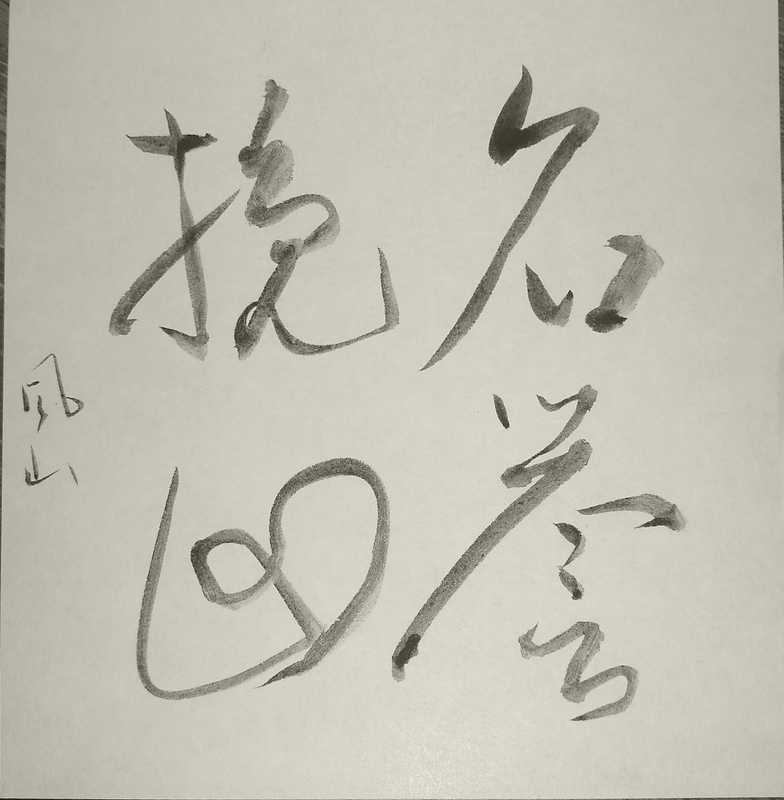 名誉
挽回
風山